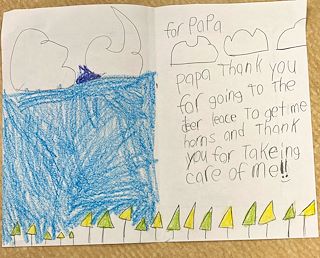 for PaPa
PaPa Thank you
for going to the
ber leace to get me
horns and Thank
you for Takeing
care of Me!!